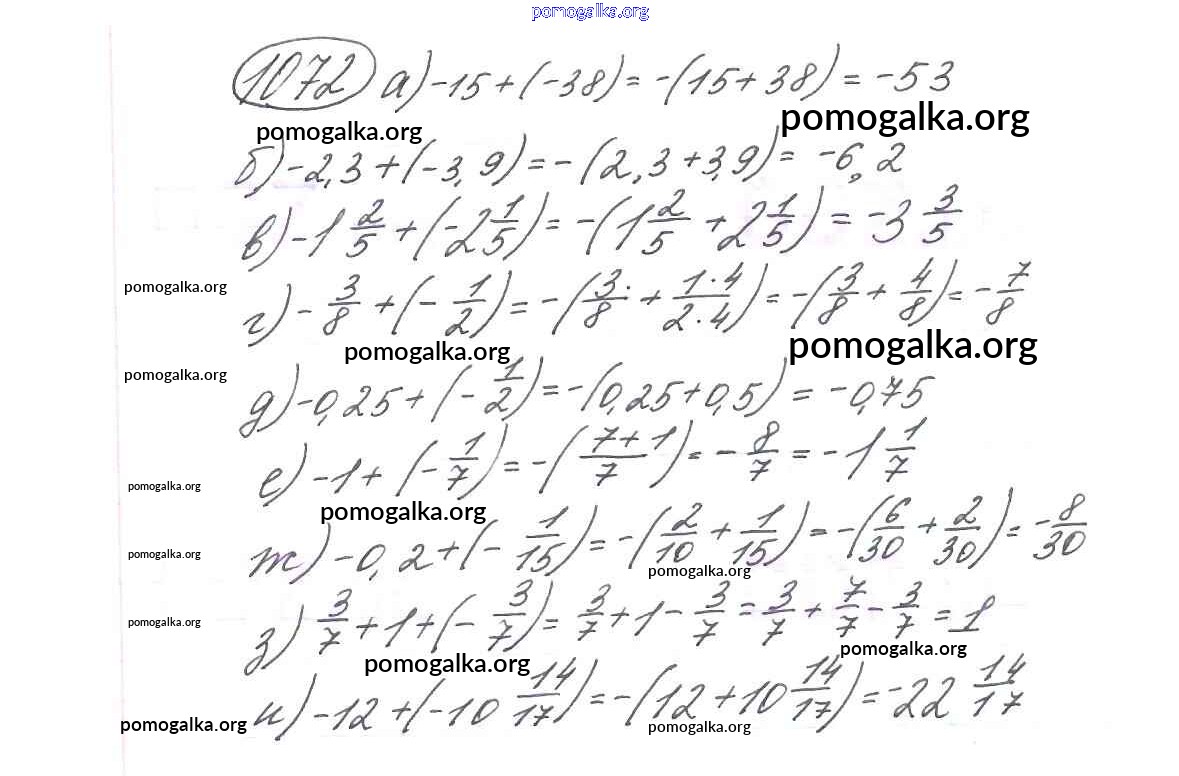 pomogalka.org
1072 а) -15 + (-38) = -(15 + 38) = -53
pomogalka.org pomogalka.org
б) -2,3 + (-3,9) = -(2,3 + 3,9) = -6,2
в) -1 2/5 + (-2 1/5) = -(1 2/5 + 2 1/5) = -3 3/5
pomogalka.org
г) -3/8 + (-1/2) = -(3·/8 + 1·4/2·4) = -(3/8 + 4/8) = -7/8
pomogalka.org pomogalka.org
pomogalka.org
д) -0,25 + (-1/2) = -(0,25 + 0,5) = -0,75
е) -1 + (-1/7) = -(7+1/7) = -8/7 = -1 1/7
pomogalka.org
pomogalka.org
ж) -0,2 + (-1/15) = -(2/10 + 1/15) = -(6/30 + 2/30) = -8/30
pomogalka.org
pomogalka.org
з) 3/7 + 1 + (-3/7) = 3/7 + 1 - 3/7 = 3/7 + 7/7 - 3/7 = 1
pomogalka.org
pomogalka.org pomogalka.org
и) -12 + (-10 14/17) = -(12 + 10 14/17) = -22 14/17
pomogalka.org pomogalka.org